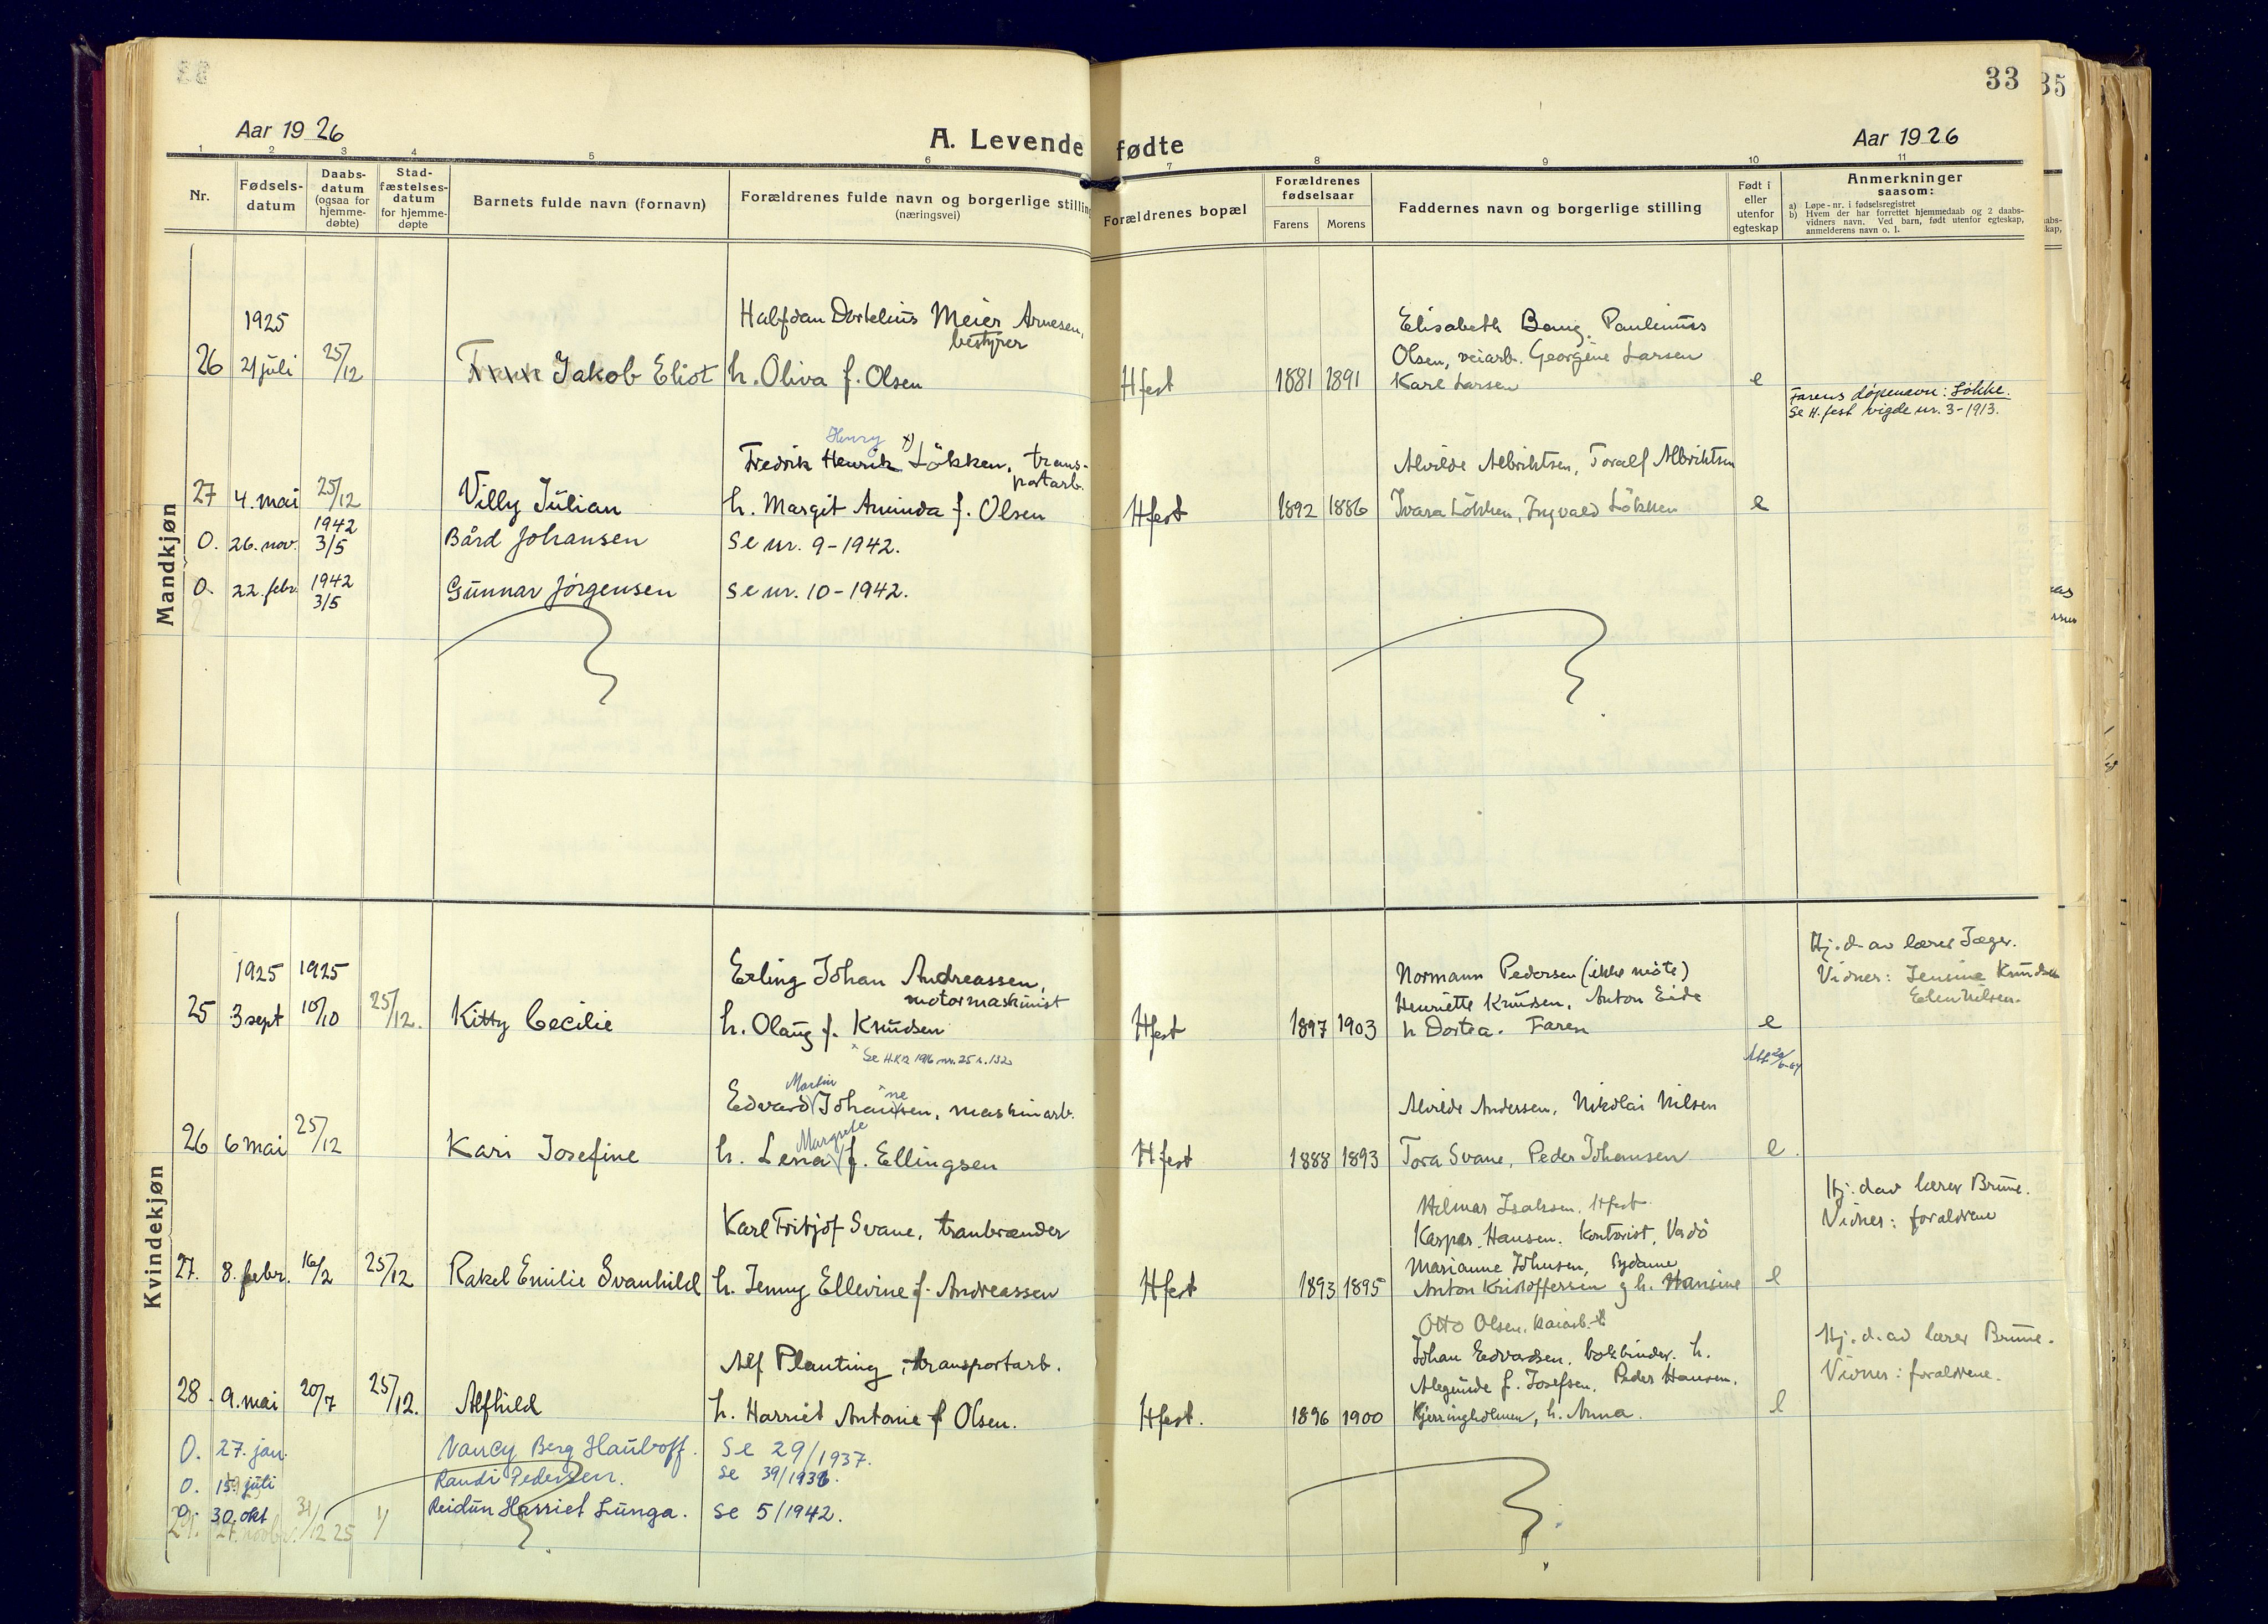 33
35
Aar 1926
A. Levende fødte
Aar 1926
1 2 3 4 5 6 7 8 9 10 11
Nr.
Fødsels-
datum
Daabs-
datum
(ogsaa for
hjemme-
døbte)
Stad-
fæstelses-
datum
for hjemme-
døpte
Barnets fulde navn (fornavn)
Forældrenes fulde navn og borgerlige stilling
(næringsvei)
Forældrenes bopæl
Forældrenes
fødselsaar
Farens Morens
Faddernes navn og borgerlige stilling
Født i
eller
utenfor
egteskap
Anmerkninger
saasom:
a) Løpe-nr. i fødselsregistret
b) Hvem der har forrettet hjemmedaab og 2 daabs-
vidners navn. Ved barn, født utenfor egteskap,
anmelderens navn o. l.
Mandkjøn
1925
Halfdan Dortelius Meier Arnesen,
bestyrer
Elisabeth Bang. Paulinus
Olsen, veiarb. Georgine Larsen
26 21 juli 25/12 Jakob Eliot h. Oliva f. Olsen Hfest 1881 1891 Karl Larsen e
Farens døpenavn: Løkke.
Se H.fest vigde nr. 3-1913.
Henry x)
Fredrik Henrik Løkken, trans-
portarb.
Alvilde Albriktsen, Toralf Albriktsen
27 4. mai 25/12 Villy Julian h. Margit Aminda f. Olsen Hfest 1892 1886 Ivara Løkken, Ingvald Løkken e
0. 26. nov. 1942 3/5 Bård Johansen Se nr. 9-1942.
0. 22. febr. 1942 3/5 Gunnar Jørgensen Se nr. 10-1942.
Kvindekjøn
1925 1925
Erling Johan Andreassen,
motormaskinist
Normann Pedersen (ikke møte)
Henriette Knudsen, Anton Eide
Hj. d. av lærer Jæger.
Vidner: Jensine Knudsen
Elen Nilsen.
25 3 sept 10/10 25/12. Kitty Cecilie h. Olaug f. Knudsen Hfest 1897 1903 h Dortea. Faren e
Martin
Edvard Johansen, maskinarb.
ne
Alvilde Andersen, Nikolai Nilsen
Margrete
26 6 mai 25/12 Kari Josefine h. Lena f. Ellingsen Hfest 1888 1893 Tora Svane, Peder Johansen e.
Karl Fritjof Svane, tranbrænder
Hilmar Isaksen, Hfest
Kaspar Hansen. kontorist, Vadsö
Marianne Johnsen,
Hj. d av lærer Brune.
Vidner: forældrene
27. 8. febr. 16/2 25/12 Rakel Emilie Svanhild h. Jenny Ellevine f. Andreassen Hfest 1893 1895 Anton Kristoffersen g h. Hansine e
Alf Planting, transportarb.
Otto Olsen, kaiarb.
Johan Edvardsen, bokbinder. h.
Alegunde f. Josefsen. Peder Hansen,
Hj. d. av lærer Brune.
Vidner: forældrene.
28. 9. mai 20/7 25/12. Alfhild h. Harriet Antonie f Olsen. Hfest. 1896 1900 Kjerringholmen, h. Anna. e
0. 27. jan. Nancy Berg Hauboff. Se 29/1937.
0. 15. juli Randi Pedersen. Se 39/1936.
0. 30. okt Reidun Harriet Lunga. Se 5/1942.
29.